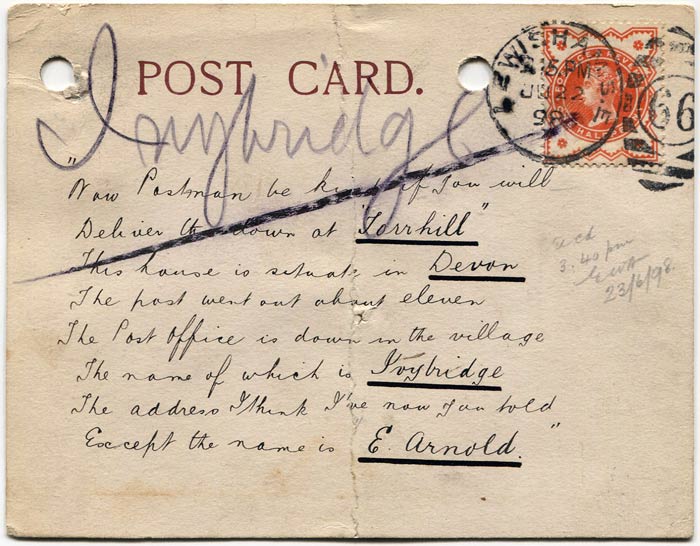 POST CARD.
Ivybridge
LEWISHA
JU 22
98
66
HALFPENNY
"Now Postman be kind if you will
Deliver this down at "Torrhill"
This house is situate in Devon
The post went out about eleven
The Post Office is down in the village
The name of which is Ivybridge
The address I think I've now you told
Except the name is E. Arnold."
3.40 pm
23/6/98.